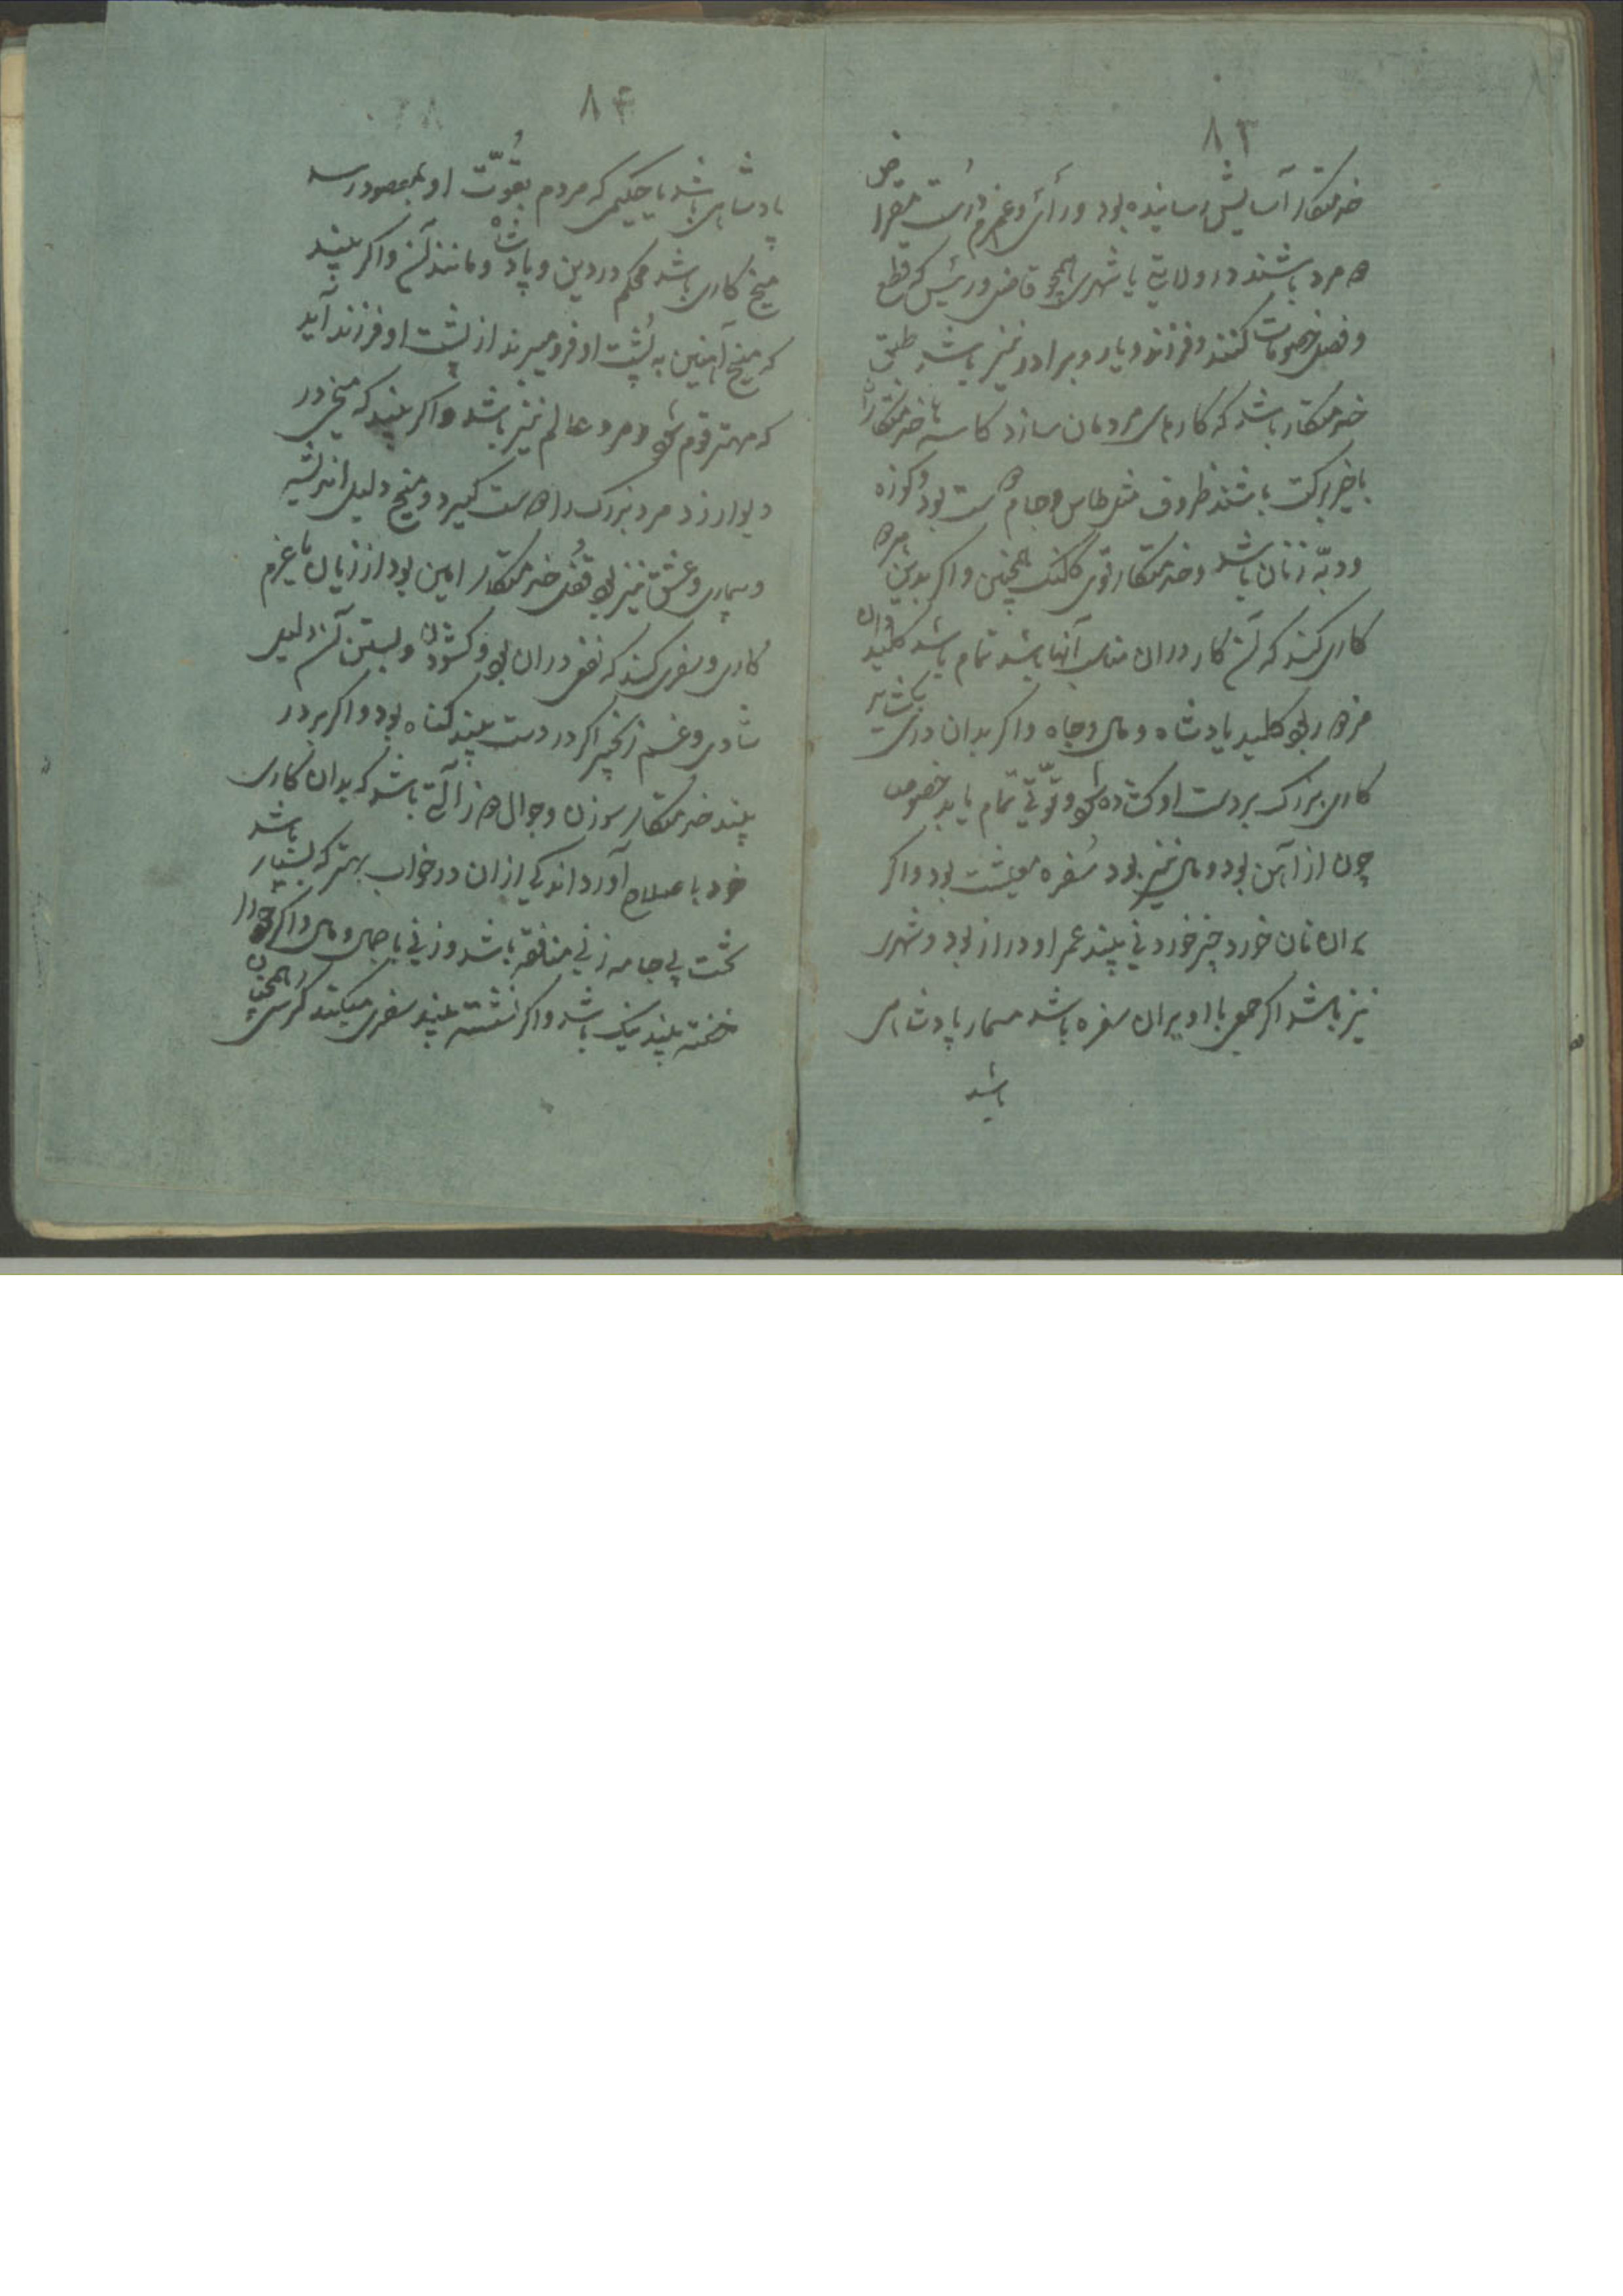 ۸۳
خدمتکار آسایش رساینده بود و رأی و عزم درست مقراض
دو مرد باشند در ولایتی یا شهری همچو قاضی و رئیس که قطع
و فصل خصومات کنند و فرزند و یار و برادر نیز باشد طبق
خدمتکار باشد که کارهای مردمان سازد کاسه‌ها خدمتکاران
با خیر و برکت باشند ظروف مثل طاس و جام هست بود و کوزه
و دبّه زنان باشد و خدمتکار قوی کلنک همچنین و اکر بدین هر دو
کاری کند که آن کار در آن مناسب آنها باشد تمام باشد کلیدان
مزدور بود کلید پادشاه و مال و جاه و اکر بدان دری بکشاید
کاری بزرک بر دست او کشاده شود و قوّتی تمام یابد خصوصا
چون از آهن بود و مال نیز بود سُفره معیشت بود و اکر
بر آن نان خورد و چیز خوردنی بیند عمر او دراز بود و شهری
نیز باشد اکر جمعی با او بر آن سفره باشد مسمار پادشاهی
باشد
۸۴
پادشاهی باشد یا حکیمی که مردم بقُوّت او بمقصود رسد
میخ کاری باشد محکم در دین و پادشاه و مانند آن و اکر بیند
که میخ آهنین به پُشت او فرو میبرند از پشت او فرزند آید
که مهتر قوم شود و مرد عالم نیز باشد و اکر بیند که میخی در
دیوار زد مرد بزرک را دوست کیرد و میخ دلیل اندیشه
و بیماری و عشق نیز بود قُفل خدمتکار امین بود از زیان یا عزم
کاری و سفری کند که نفع در آن بود و کشودن و بستن آن دلیل
شادی و غم زنجیر اکر در دست بیند کناه بود و اکر بر در
بیند خدمتکار سوزن و جوال‌دوز آلتی باشد که بدان کاری
خود با صلاح آورد اندکی از آن در خواب بهتر که بسیار باشد
تخت بی جامه زنی منافقه باشد و زنی با جمال و مال و اکر خود را
خفته بیند نیک باشد و اکر نشسته بیند سفری میکند کرسی همچنان